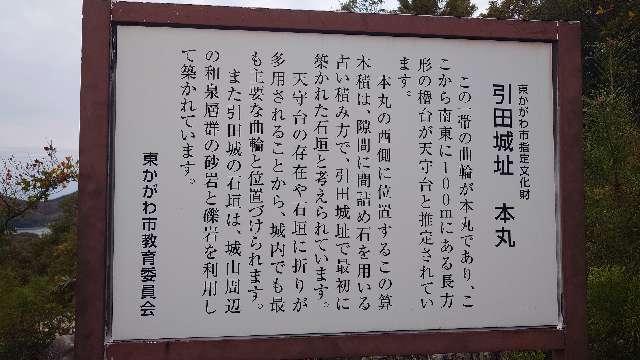 東かがわ市指定文化財
引田城址 本丸
この一帯の曲輪が本丸であり、こ
こから南東に100mにある長方
形の櫓台が天守台と推定されてい
ます。
本丸の西側に位置するこの算
木積は、隙間に間詰め石を用いる
古い積み方で、引田城址で最初に
築かれた石垣と考えられています。
天守台の存在や石垣に折りが
多用されることから、城内でも最
も主要な曲輪と位置づけられます。
また引田城の石垣は、城山周辺
の和泉層群の砂岩と礫岩を利用し
て築かれています。
東かがわ市教育委員会